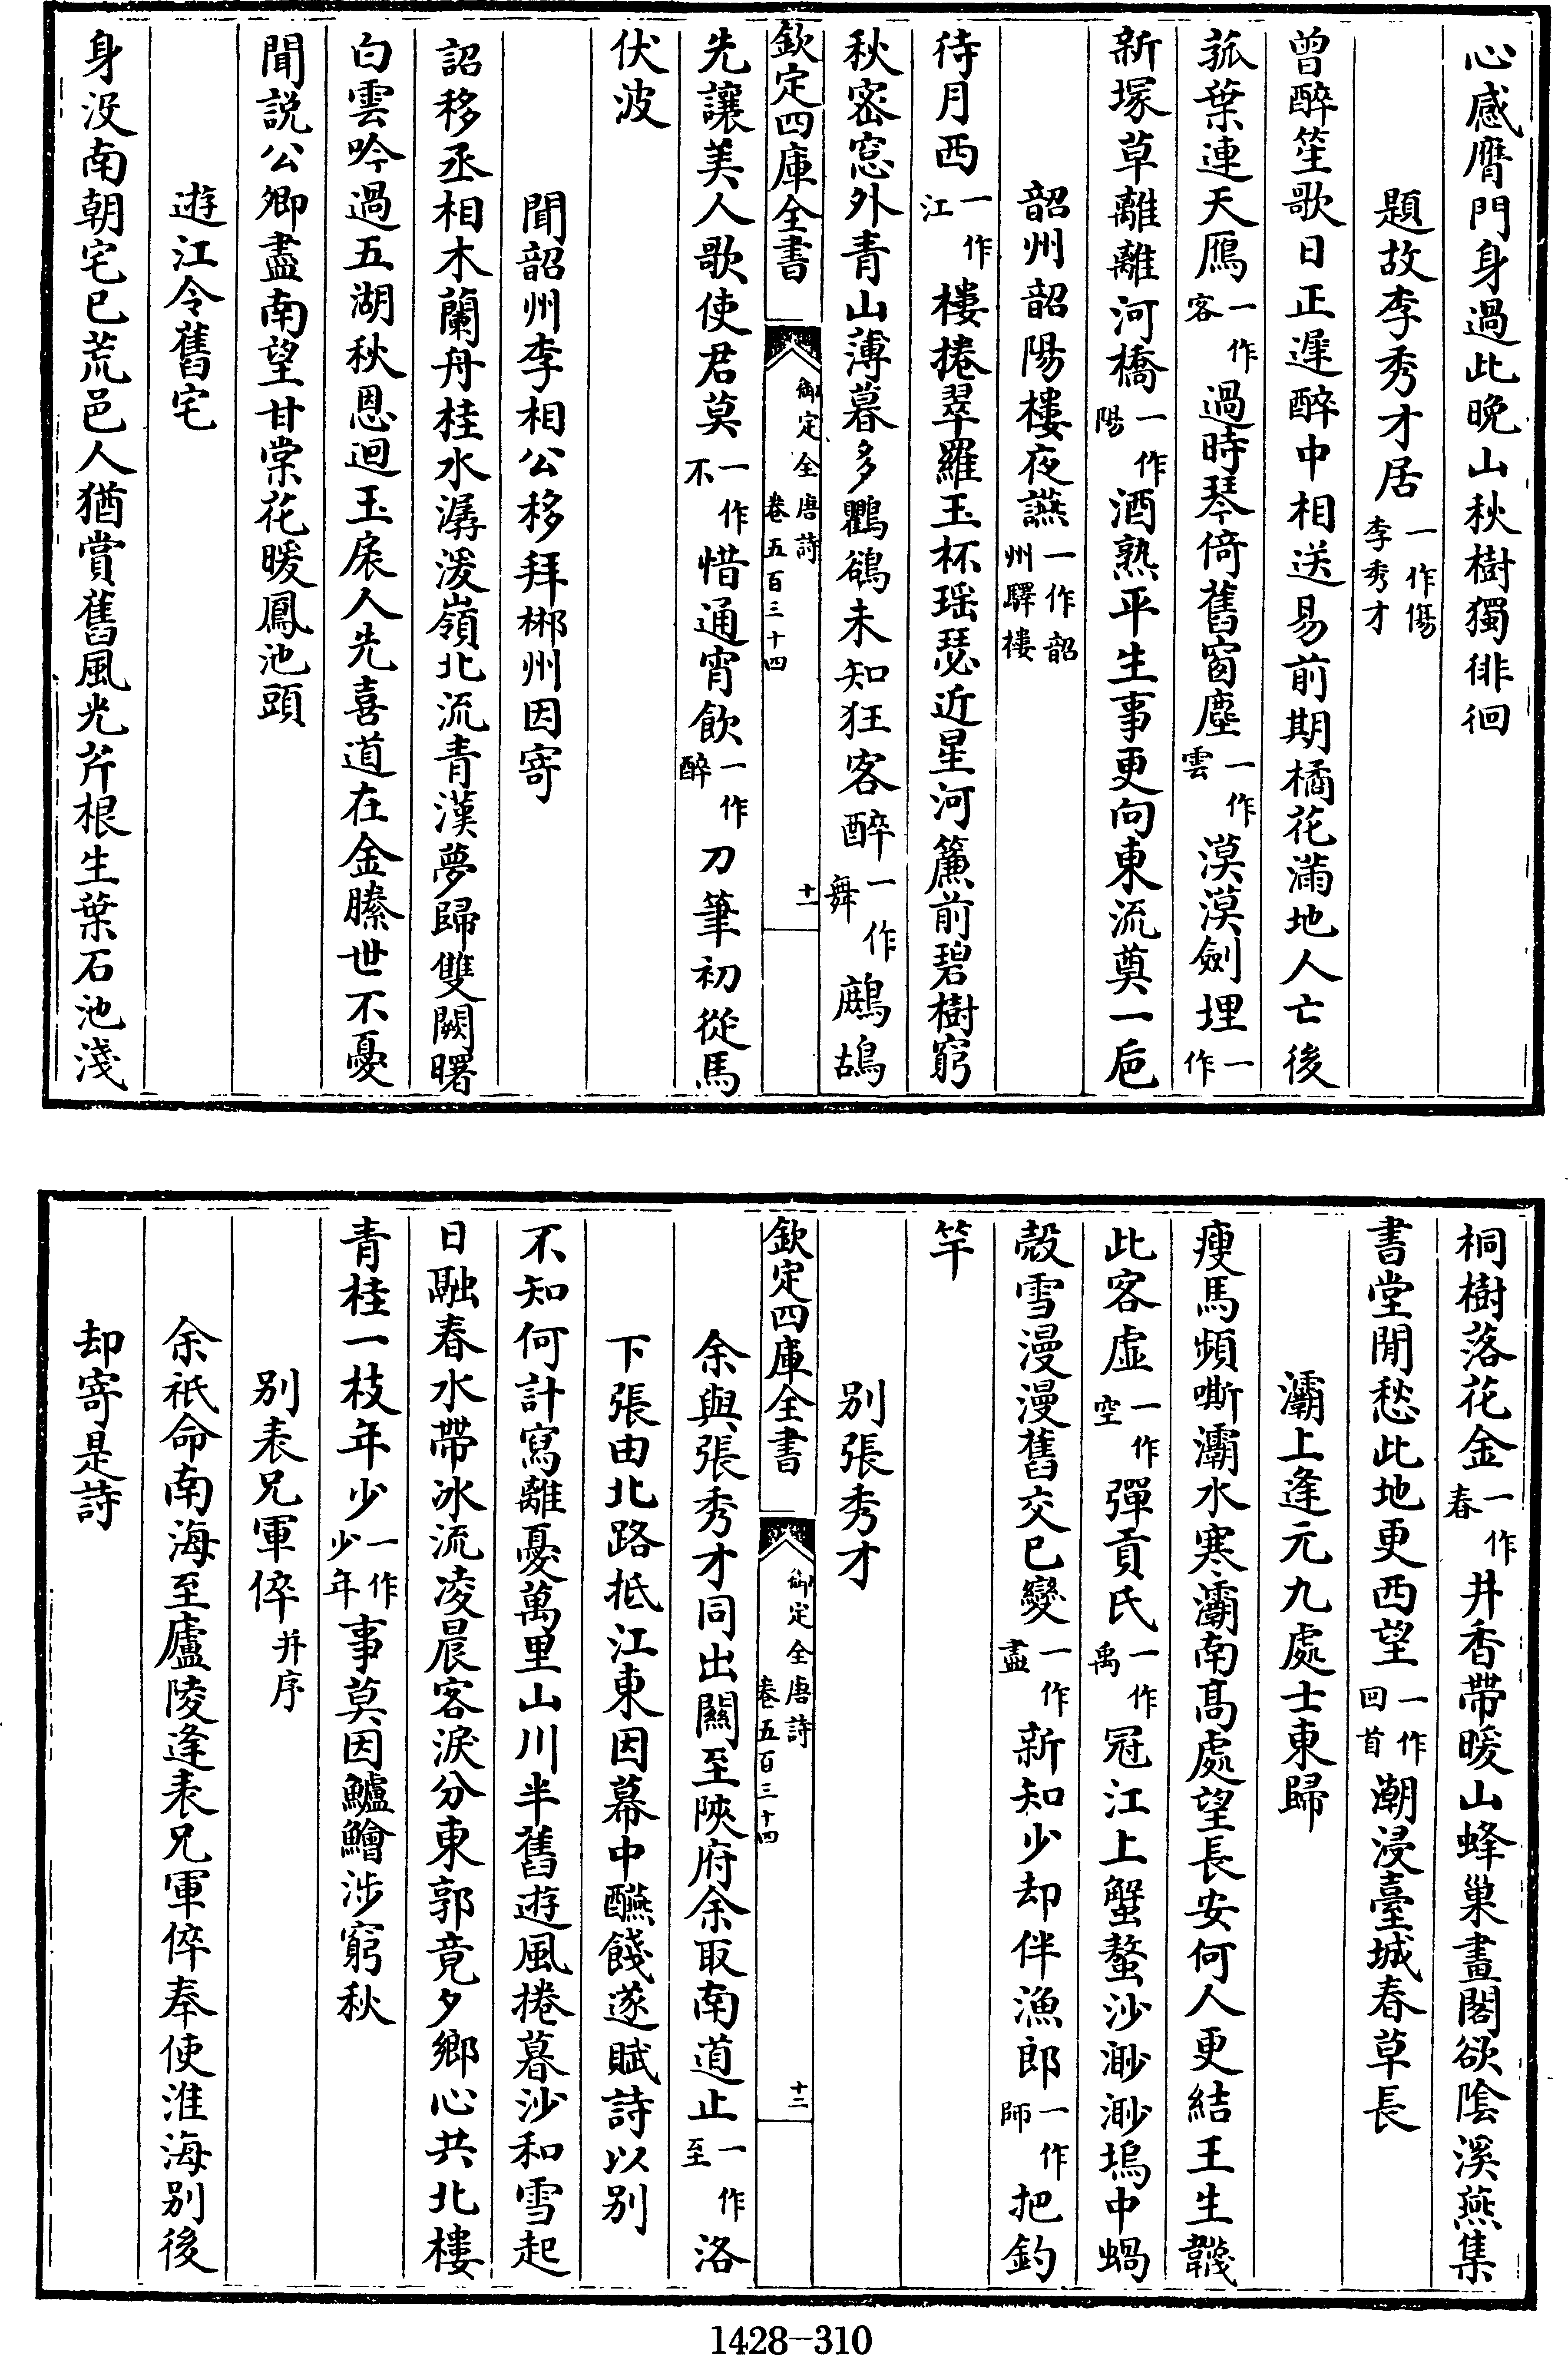 心感膺門身過此晚山秋樹獨徘徊
題故李秀才居一作傷李秀才
曾醉笙歌日正遲醉中相送易前期橘花滿地人亡後
菰葉連天鴈一作客過時琴倚舊窗塵一作雲漠漠劍埋一作
新塚草離離河橋一作陽酒熟平生事更向東流奠一巵
韶州韶陽樓夜讌一作韶州驛樓
待月西一作江樓捲翠羅玉杯瑶瑟近星河簾前碧樹窮
秋密窓外青山薄暮多鸜鵒未知狂客醉一作舞鷓鴣
欽定四庫全書
御定全唐詩
卷五百三十四
十一
先讓美人歌使君莫一作不惜通宵飲一作醉刀筆初從馬
伏波
聞韶州李相公移拜郴州因寄
詔移丞相木蘭舟桂水潺湲嶺北流青漢夢歸雙闕曙
白雲吟過五湖秋恩迴玉扆人先喜道在金縢世不憂
聞説公卿盡南望甘棠花暖鳳池頭
遊江令舊宅
身没南朝宅已荒邑人猶賞舊風光芹根生葉石池淺
桐樹落花金一作春井香帶暖山蜂巢畫閣欲陰溪燕集
書堂閒愁此地更西望一作回首潮浸臺城春草長
灞上逢元九處士東歸
瘦馬頻嘶灞水寒灞南髙處望長安何人更結王生韈
此客虚一作空彈貢氏一作禹冠江上蟹螯沙渺渺塢中蝸
殻雪漫漫舊交已變一作盡新知少却伴漁郎一作師把釣
竿
別張秀才
欽定四庫全書
御定全唐詩
卷五百三十四
十二
余與張秀才同出關至陝府余取南道止一作至洛
下張由北路抵江東因幕中醼餞遂賦詩以別
不知何計寫離憂萬里山川半舊遊風捲暮沙和雪起
日融春水帶冰流凌晨客淚分東郭竟夕鄉心共北樓
青桂一枝年少一作少年事莫因鱸鱠涉窮秋
別表兄軍倅并序
余祇命南海至廬陵逢表兄軍倅奉使淮海別後
却寄是詩
1428-310